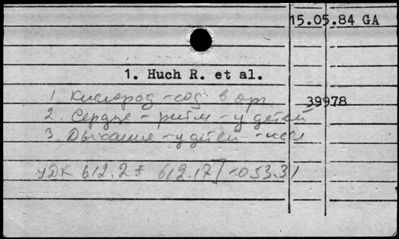 15.05.84 GA
1. Huch R. et al.
1. Кислород - сод в орг
39978
2. Сердце - ритм - у детей
3. Дыхание - у детей - исл
УДК 612.2 + 612.17] -053.31